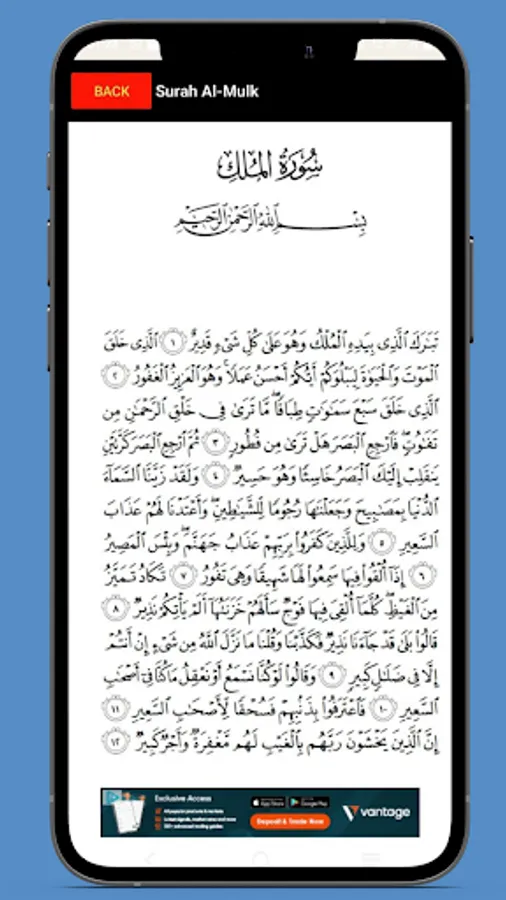 BACK
Surah Al-Mulk
سُورَةُ المُلْكِ
بِسْمِ اللَّهِ الرَّحْمَٰنِ الرَّحِيمِ
تَبَٰرَكَ ٱلَّذِى بِيَدِهِ ٱلْمُلْكُ وَهُوَ عَلَىٰ كُلِّ شَىْءٍ قَدِيرٌ ١ ٱلَّذِى خَلَقَ
ٱلْمَوْتَ وَٱلْحَيَوٰةَ لِيَبْلُوَكُمْ أَيُّكُمْ أَحْسَنُ عَمَلًا ۚ وَهُوَ ٱلْعَزِيزُ ٱلْغَفُورُ ٢
ٱلَّذِى خَلَقَ سَبْعَ سَمَٰوَٰتٍ طِبَاقًا ۖ مَّا تَرَىٰ فِى خَلْقِ ٱلرَّحْمَٰنِ مِن
تَفَٰوُتٍ ۖ فَٱرْجِعِ ٱلْبَصَرَ هَلْ تَرَىٰ مِن فُطُورٍ ٣ ثُمَّ ٱرْجِعِ ٱلْبَصَرَ كَرَّتَيْنِ
يَنقَلِبْ إِلَيْكَ ٱلْبَصَرُ خَاسِئًا وَهُوَ حَسِيرٌ ٤ وَلَقَدْ زَيَّنَّا ٱلسَّمَآءَ
ٱلدُّنْيَا بِمَصَٰبِيحَ وَجَعَلْنَٰهَا رُجُومًا لِّلشَّيَٰطِينِ ۖ وَأَعْتَدْنَا لَهُمْ عَذَابَ
ٱلسَّعِيرِ ٥ وَلِلَّذِينَ كَفَرُوا۟ بِرَبِّهِمْ عَذَابُ جَهَنَّمَ ۖ وَبِئْسَ ٱلْمَصِيرُ
٦ إِذَآ أُلْقُوا۟ فِيهَا سَمِعُوا۟ لَهَا شَهِيقًا وَهِىَ تَفُورُ ٧ تَكَادُ تَمَيَّزُ
مِنَ ٱلْغَيْظِ ۖ كُلَّمَآ أُلْقِىَ فِيهَا فَوْجٌ سَأَلَهُمْ خَزَنَتُهَآ أَلَمْ يَأْتِكُمْ نَذِيرٌ ٨
قَالُوا۟ بَلَىٰ قَدْ جَآءَنَا نَذِيرٌ فَكَذَّبْنَا وَقُلْنَا مَا نَزَّلَ ٱللَّهُ مِن شَىْءٍ إِنْ أَنتُمْ
إِلَّا فِى ضَلَٰلٍ كَبِيرٍ ٩ وَقَالُوا۟ لَوْ كُنَّا نَسْمَعُ أَوْ نَعْقِلُ مَا كُنَّا فِىٓ أَصْحَٰبِ
ٱلسَّعِيرِ ١٠ فَٱعْتَرَفُوا۟ بِذَنۢبِهِمْ فَسُحْقًا لِّأَصْحَٰبِ ٱلسَّعِيرِ ١١
إِنَّ ٱلَّذِينَ يَخْشَوْنَ رَبَّهُم بِٱلْغَيْبِ لَهُم مَّغْفِرَةٌ وَأَجْرٌ كَبِيرٌ ١٢
Exclusive Access
App Store
Google Play
Deposit & Trade Now
vantage